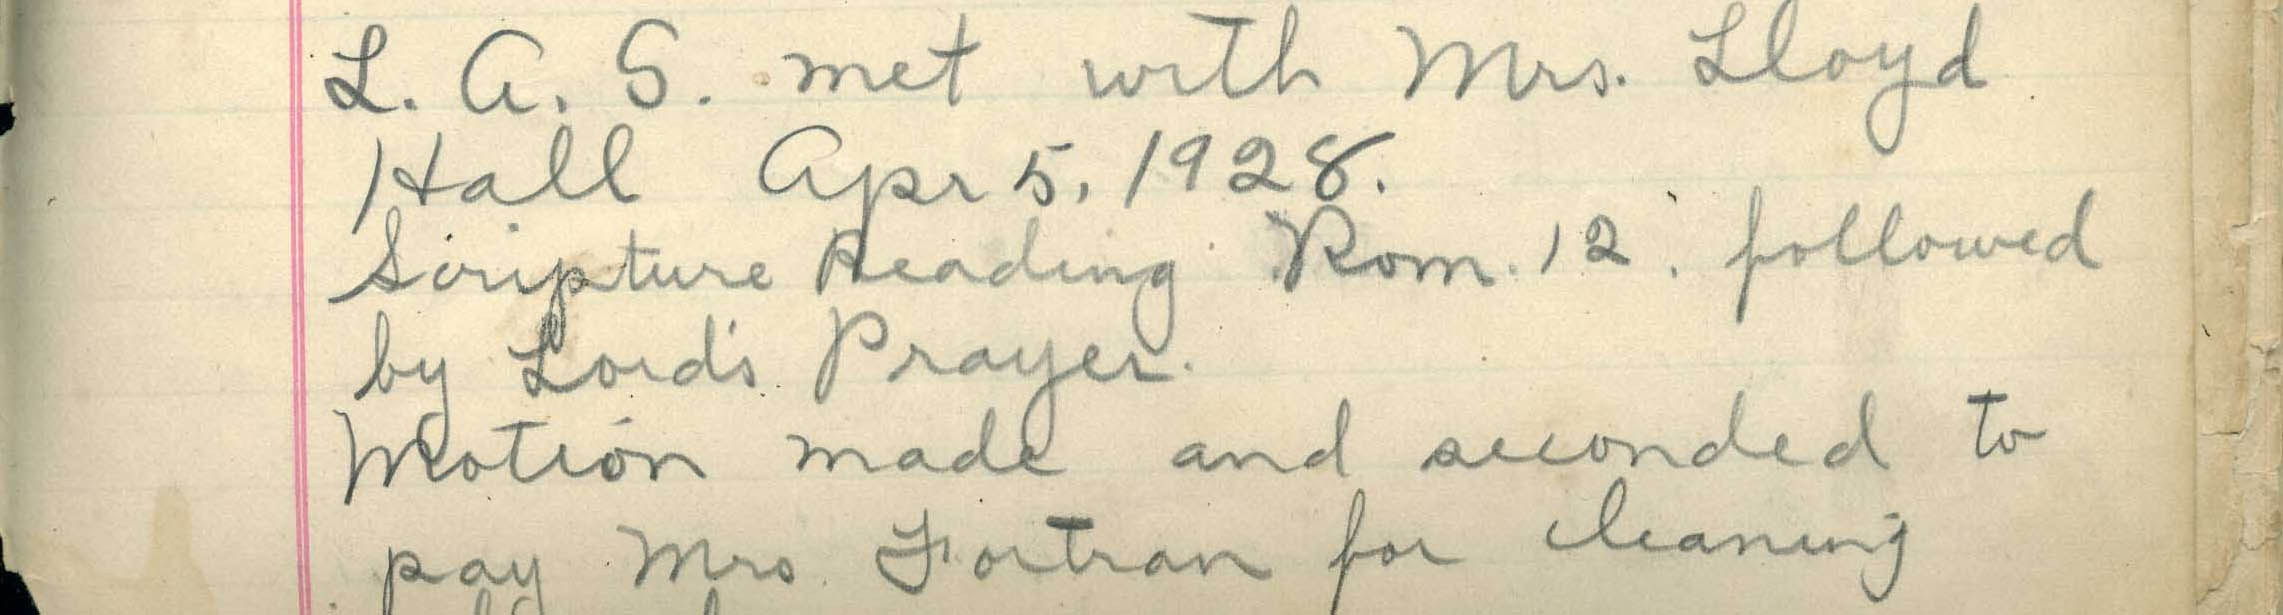 L. A. S. met with Mrs. Lloyd
Hall Apr 5, 1928.
Scripture Reading Rom. 12. followed
by Lord's Prayer.
Motion made and seconded to
pay Mrs. Fortran for cleaning